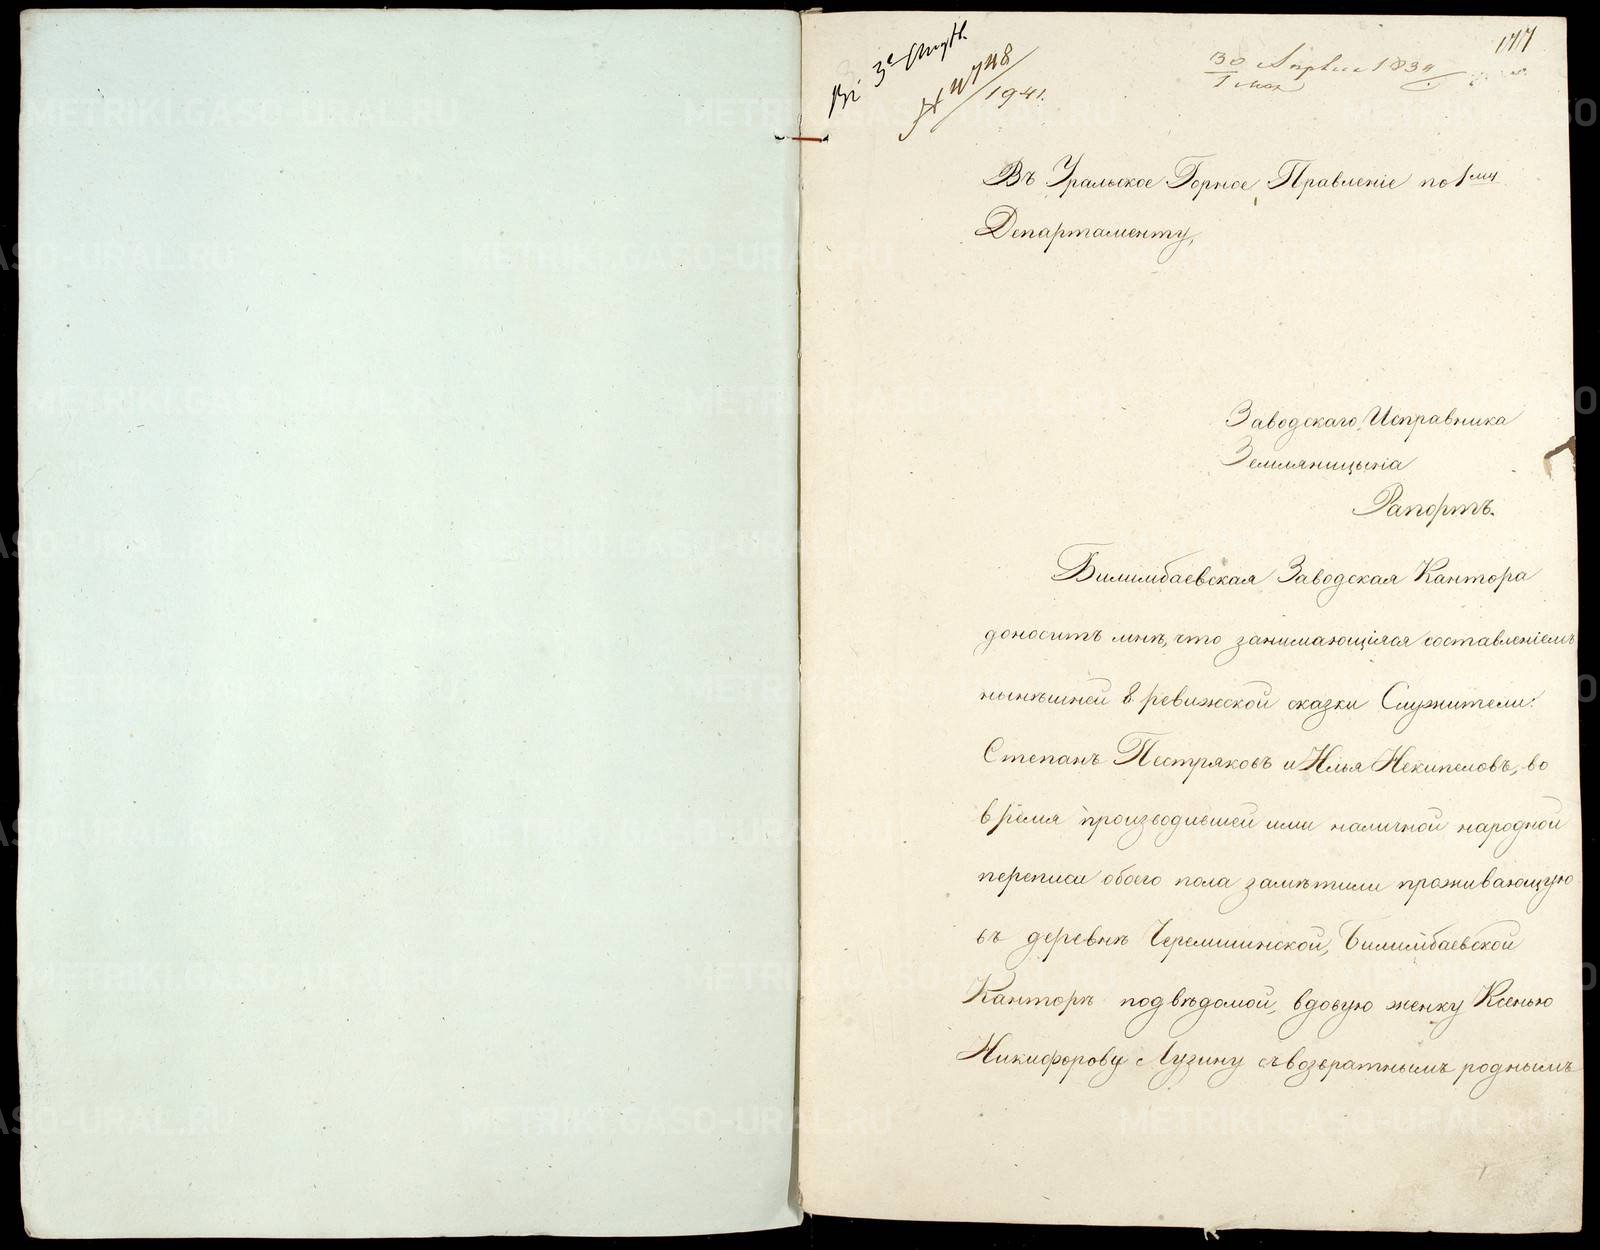 Въ 3е Стол.
№ 4748
1941.
30 Апреля 1834
1 мая
Въ Уральское Горное Правленіе по 1му
Департаменту,
Заводскаго Исправника
Земляницына
Рапортъ.
Билимбаевская Заводская Кантора
доноситъ мнѣ, что занимающіяся составленіемъ
нынѣшней 8 ревижской сказки Служители:
Степанъ Пестряковъ и Илья Некипеловъ, во
время производившей ими наличной народной
переписи обоего пола замѣтили проживающую
въ деревнѣ Черемшинской, Билимбаевской
Канторѣ подвѣдомой, вдовую женку Ксенью
Никифорову Лузину съ возвратнымъ роднымъ
METRIKI.GASO-URAL.RU